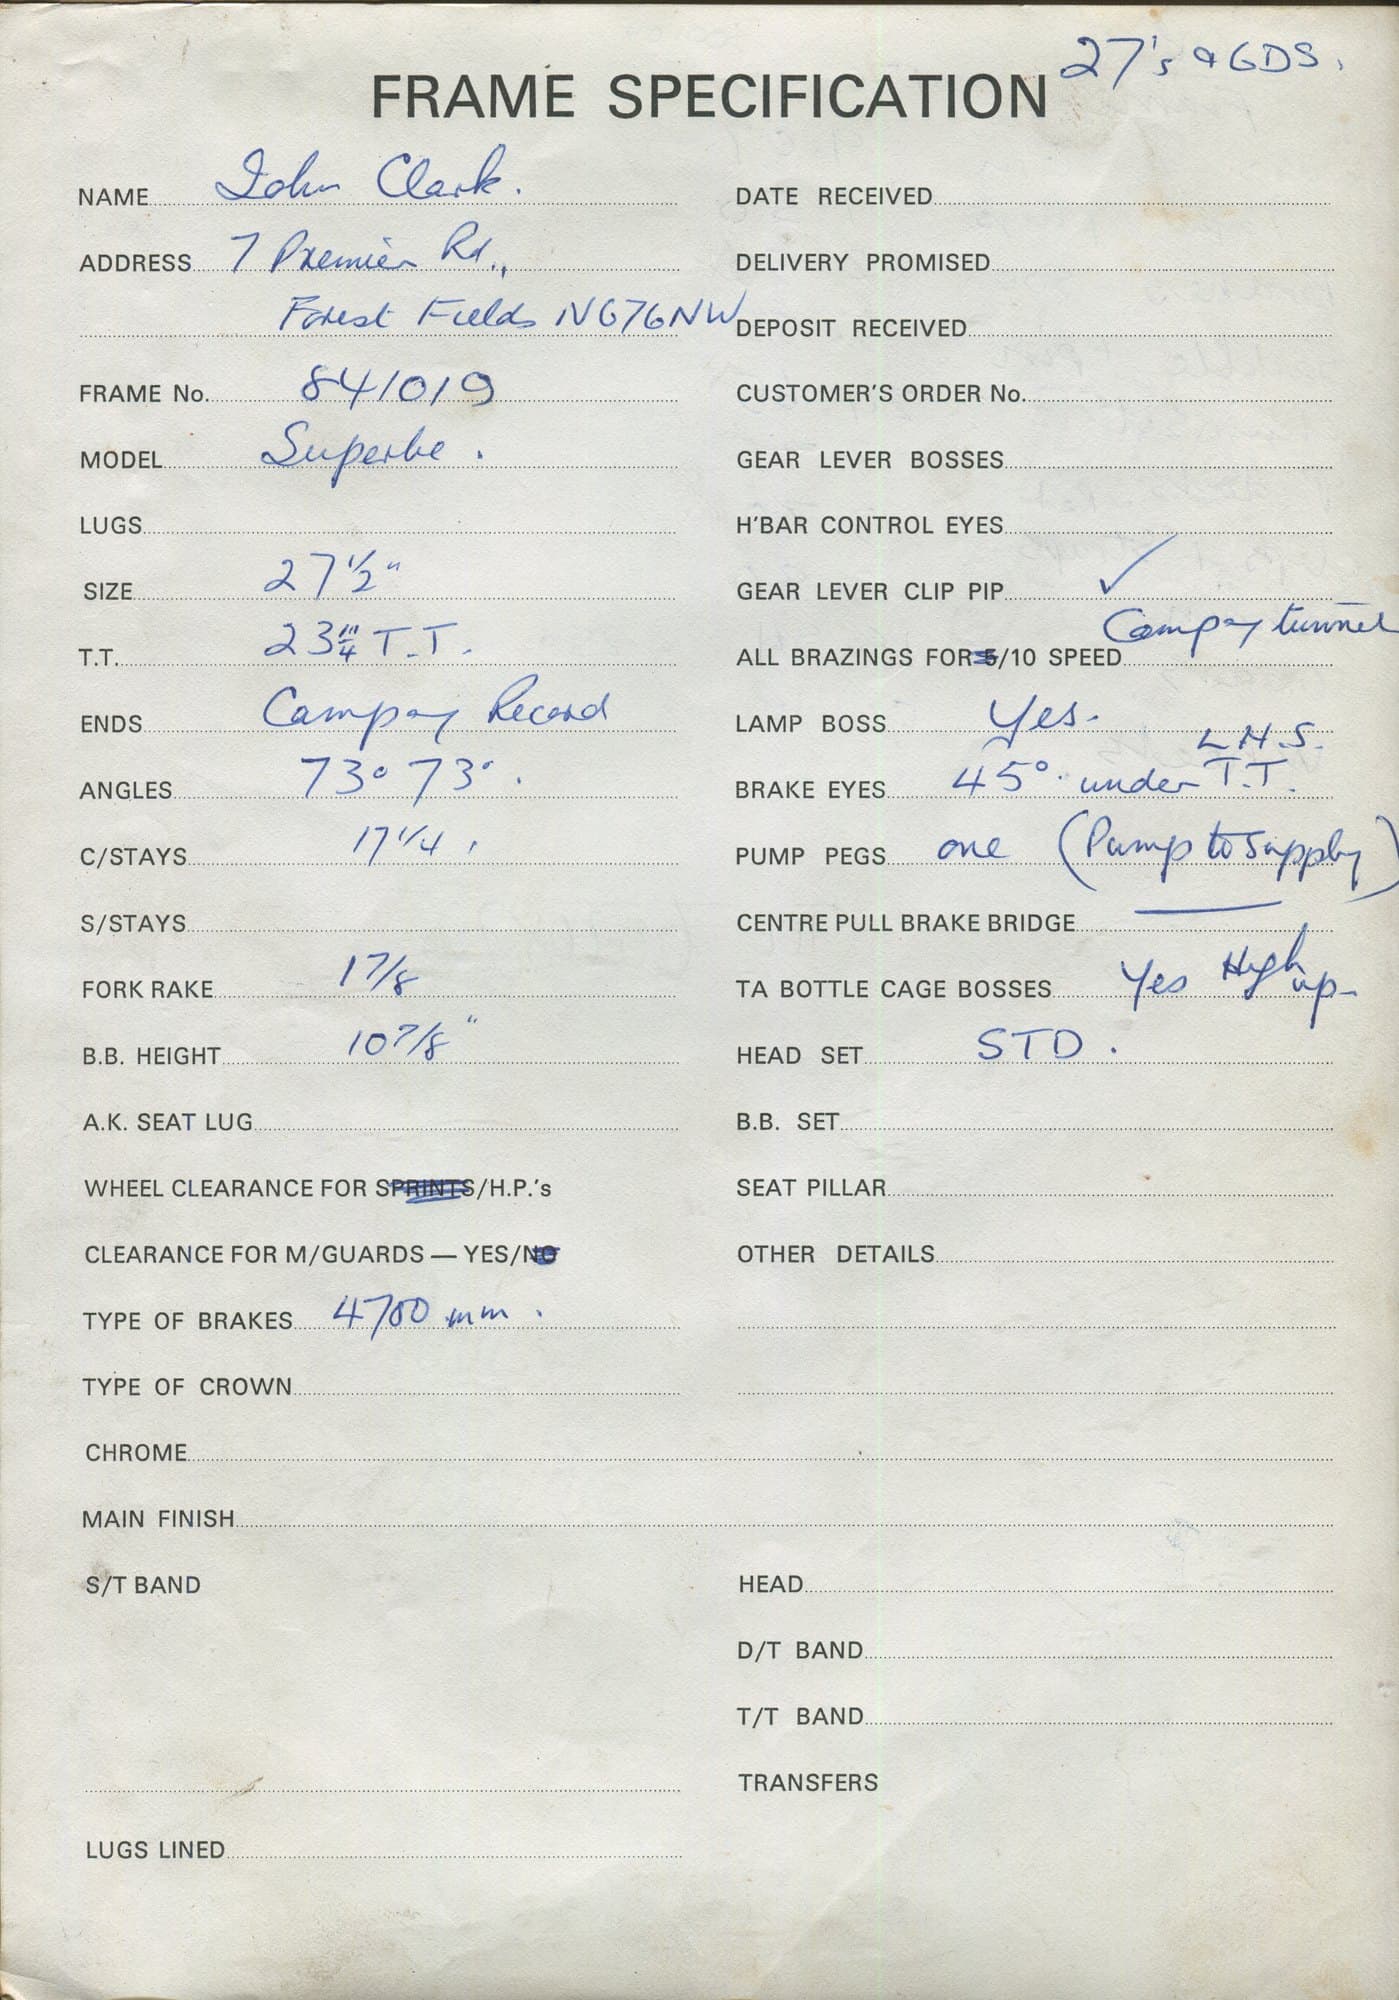 27's & GDS.
FRAME SPECIFICATION
NAME John Clark.
ADDRESS 7 Premier Rd.,
Forest Fields NG76NW
FRAME No. 841019
MODEL Superbe.
LUGS
SIZE 27 1/2"
T.T. 23 3/4 T.T.
ENDS Campag Record
ANGLES 73° 73°.
C/STAYS 17 1/4.
S/STAYS
FORK RAKE 1 7/8
B.B. HEIGHT 10 7/8"
A.K. SEAT LUG
WHEEL CLEARANCE FOR SPRINTS/H.P.'s
CLEARANCE FOR M/GUARDS — YES/NO
TYPE OF BRAKES 4700 mm.
TYPE OF CROWN
CHROME
MAIN FINISH
S/T BAND
LUGS LINED
DATE RECEIVED
DELIVERY PROMISED
DEPOSIT RECEIVED
CUSTOMER'S ORDER No.
GEAR LEVER BOSSES
H'BAR CONTROL EYES
GEAR LEVER CLIP PIP ✓
Campag tunnel
ALL BRAZINGS FOR 5/10 SPEED
LAMP BOSS Yes-
L.H.S.
BRAKE EYES 45°. under T.T.
PUMP PEGS one (Pump to supply)
CENTRE PULL BRAKE BRIDGE —
TA BOTTLE CAGE BOSSES Yes High up-
HEAD SET STD.
B.B. SET
SEAT PILLAR
OTHER DETAILS
HEAD
D/T BAND
T/T BAND
TRANSFERS